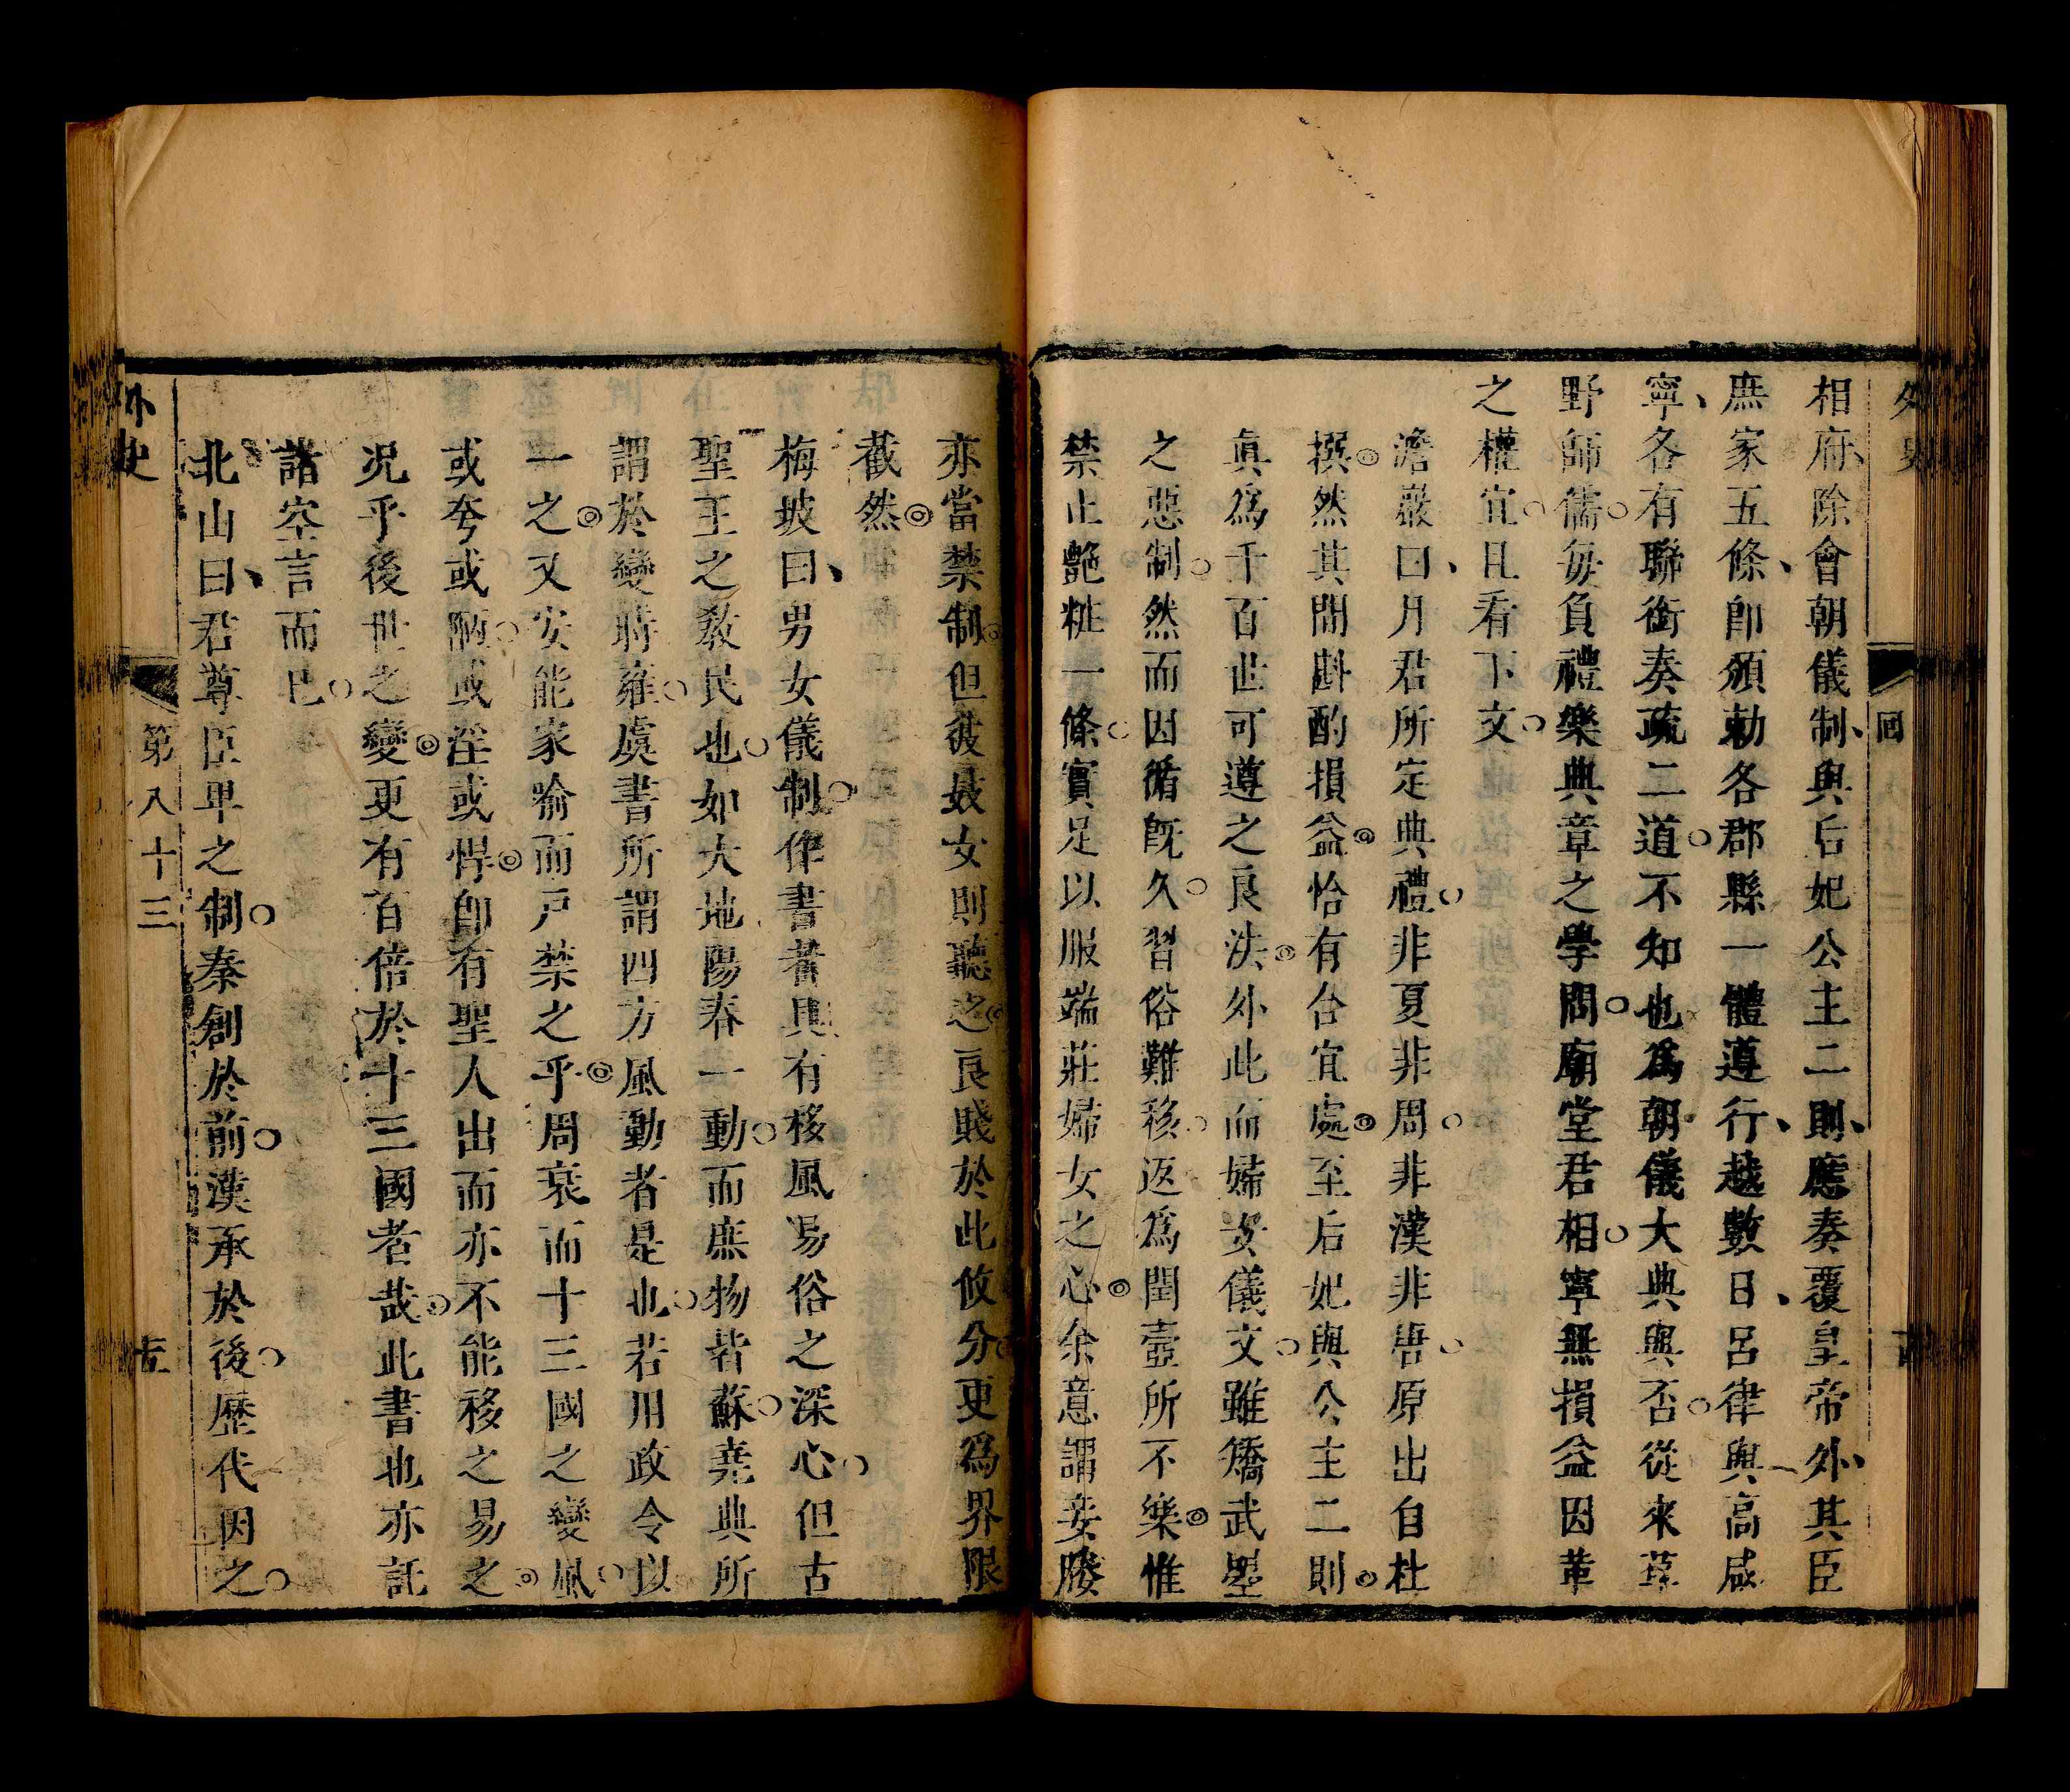 相府除會朝儀制與后妃公主二則應奏覆皇帝外其臣
庶家五條卽頒勅各郡縣一體遵行越數日呂律與高咸
寧各有聯銜奏疏二道不知也爲朝儀大典與否從來草
野師儒每負禮樂典章之學問廟堂君相寧無損益因革
之權宜且看下文
澹巖曰月君所定典禮非夏非周非漢非唐原出自杜
撰然其間斟酌損益恰有合宜處至后妃與公主二則
眞爲千百世可遵之良法外此而婦女儀文雖矯武曌
之惡制然而因循旣久習俗難移返爲閨壼所不樂惟
禁止艶粧一條實足以服端莊婦女之心余意謂妾媵
亦當禁制但彼妓女則聽之良賤於此攸分更爲界限
截然
梅坡曰男女儀制作書者具有移風易俗之深心但古
聖王之敎民也如大地陽春一動而庶物皆蘇堯典所
謂於變時雍虞書所謂四方風動者是也若用政令以
一之又安能家喻而戶禁之乎周衰而十三國之變風
或夸或陋或淫或悍卽有聖人出而亦不能移之易之
况乎後世之變更有百倍於十三國者哉此書也亦託
諸空言而已
北山曰君尊臣卑之制秦創於前漢承於後歷代因之
外史
第八十三
十五
外史
回